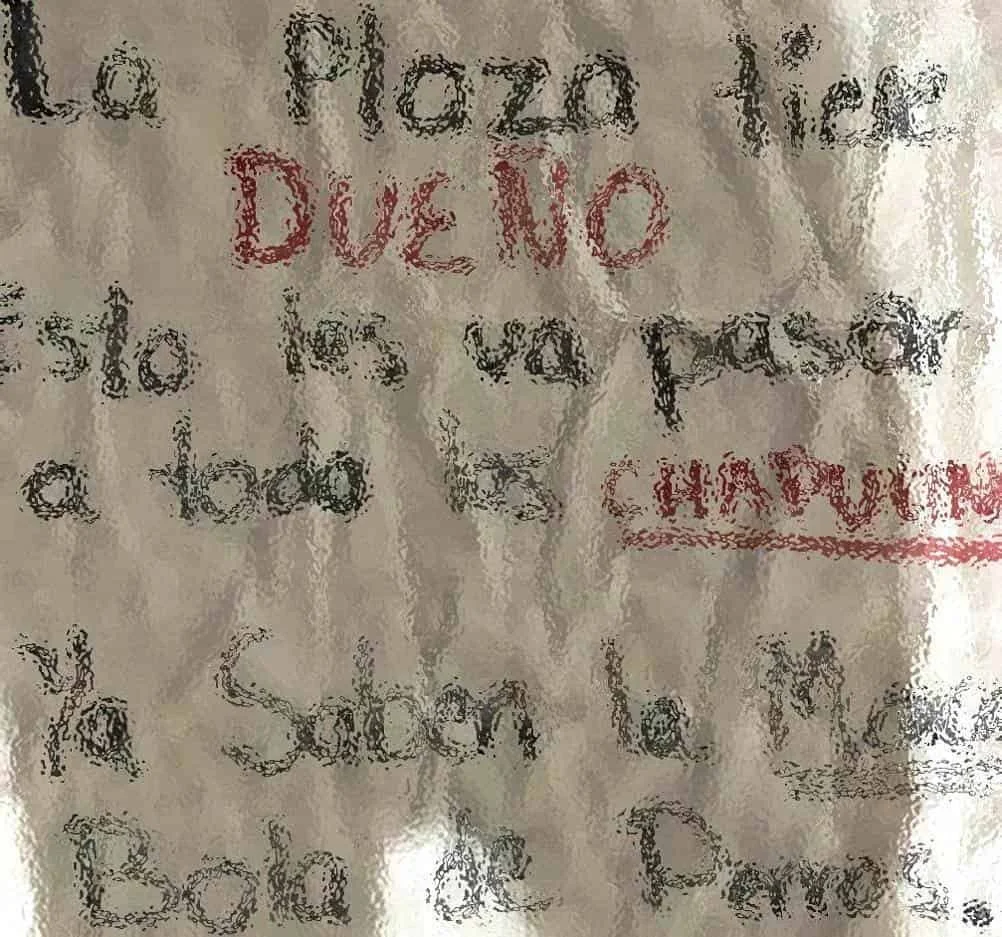 La Plaza tiene
DUEÑO
Esto les va pasar
a todo los CHAPULIN
Ya Saben la
Bola de Perros.